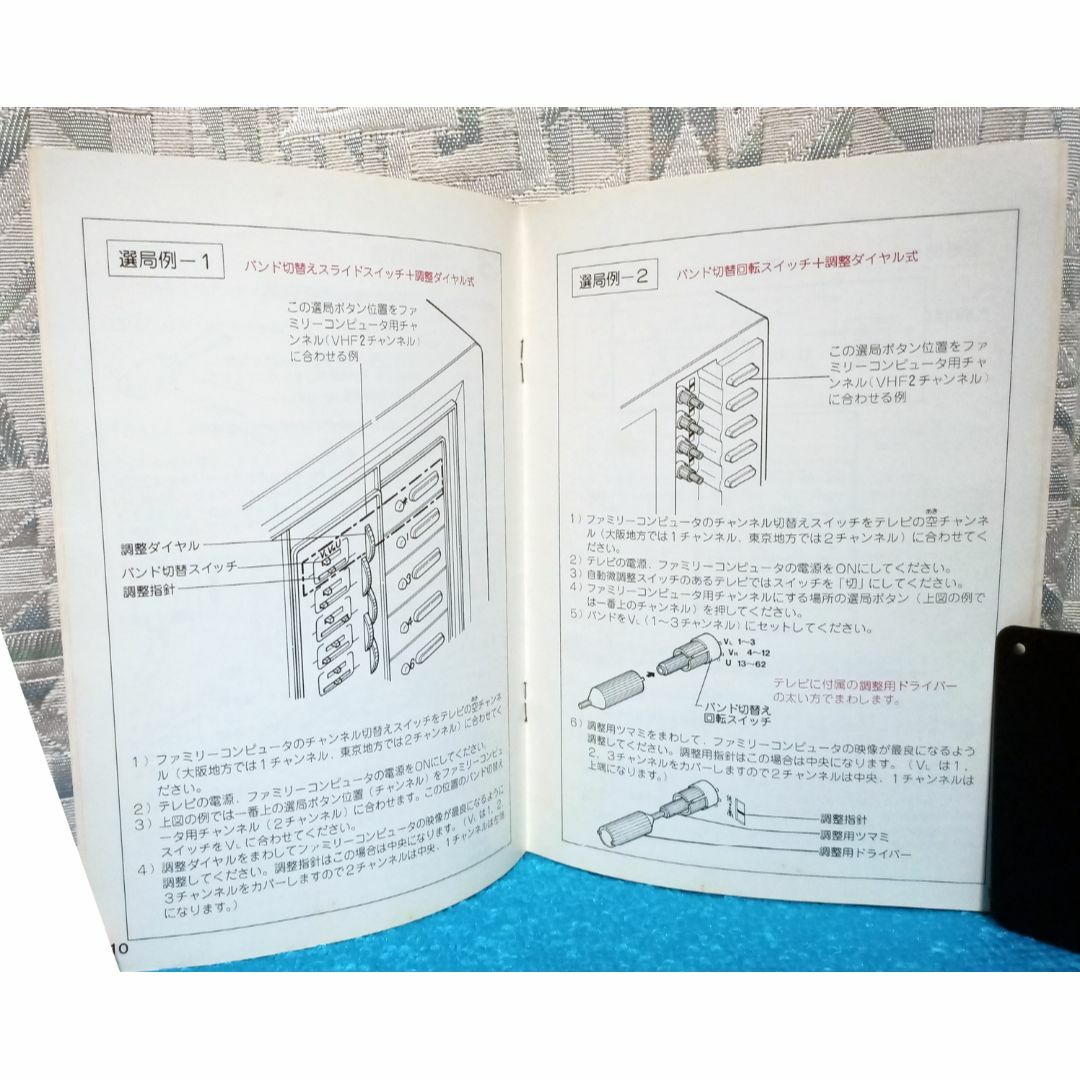 選局例－1
バンド切替えスライドスイッチ＋調整ダイヤル式
この選局ボタン位置をファ
ミリーコンピュータ用チャ
ンネル(VHF2チャンネル)
に合わせる例
調整ダイヤル
バンド切替スイッチ
調整指針
1）ファミリーコンピュータのチャンネル切替えスイッチをテレビの空チャンネ
あき
ル（大阪地方では1チャンネル、東京地方では2チャンネル）に合わせてく
ださい。
2）テレビの電源、ファミリーコンピュータの電源をONにしてください。
3）上図の例では一番上の選局ボタン位置（チャンネル）をファミリーコンピュ
ータ用チャンネル（2チャンネル）に合わせます。この位置のバンド切替え
スイッチをVLに合わせてください。
4）調整ダイヤルをまわしてファミリーコンピュータの映像が最良になるように
調整してください。調整指針はこの場合は中央になります。（VLは1、2、
3チャンネルをカバーしますので2チャンネルは中央、1チャンネルは左端
になります。）
10
選局例－2
バンド切替回転スイッチ＋調整ダイヤル式
この選局ボタン位置をファ
ミリーコンピュータ用チャ
ンネル(VHF2チャンネル)
に合わせる例
1）ファミリーコンピュータのチャンネル切替えスイッチをテレビの空チャンネ
あき
ル（大阪地方では1チャンネル、東京地方では2チャンネル）に合わせてく
ださい。
2）テレビの電源、ファミリーコンピュータの電源をONにしてください。
3）自動微調整スイッチのあるテレビではスイッチを「切」にしてください。
4）ファミリーコンピュータ用チャンネルにする場所の選局ボタン（上図の例で
は一番上のチャンネル）を押してください。
5）バンドをVL（1～3チャンネル）にセットしてください。
VL 1～3
VH 4～12
U 13～62
テレビに付属の調整用ドライバー
の太い方でまわします。
バンド切替え
回転スイッチ
6）調整用ツマミをまわして、ファミリーコンピュータの映像が最良になるよう
調整してください。調整用指針はこの場合は中央になります。（VLは1、
2、3チャンネルをカバーしますので2チャンネルは中央、1チャンネルは
上端になります。）
調整指針
調整用ツマミ
調整用ドライバー